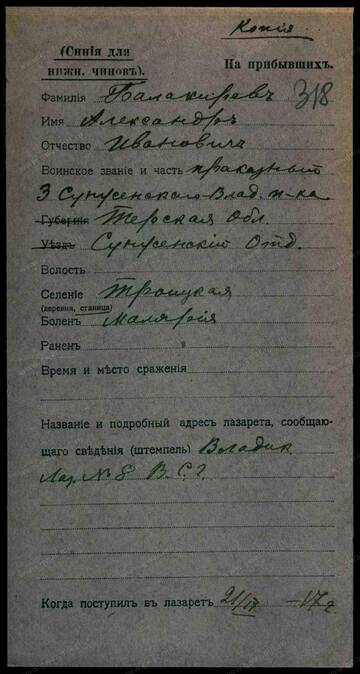 Копія
(Синія для
нижн. чиновъ).
На прибывшихъ.
318
Фамилія Балакиревъ
Имя Александръ
Отчество Ивановичъ
Воинское званіе и часть приказный
3 Сунженскаго Влад. п-ка
Губернія Терская Обл.
Уѣздъ Сунженскій Отд.
Волость
Селеніе Троицкая
(деревня, станица)
Боленъ Малярія
Раненъ
Время и мѣсто сраженія
Названіе и подробный адресъ лазарета, сообщаю-
щаго свѣдѣнія (штемпель) Владик
Лаз. № 8 В. С. Г.
Когда поступилъ въ лазаретъ 21/IV —17 г.